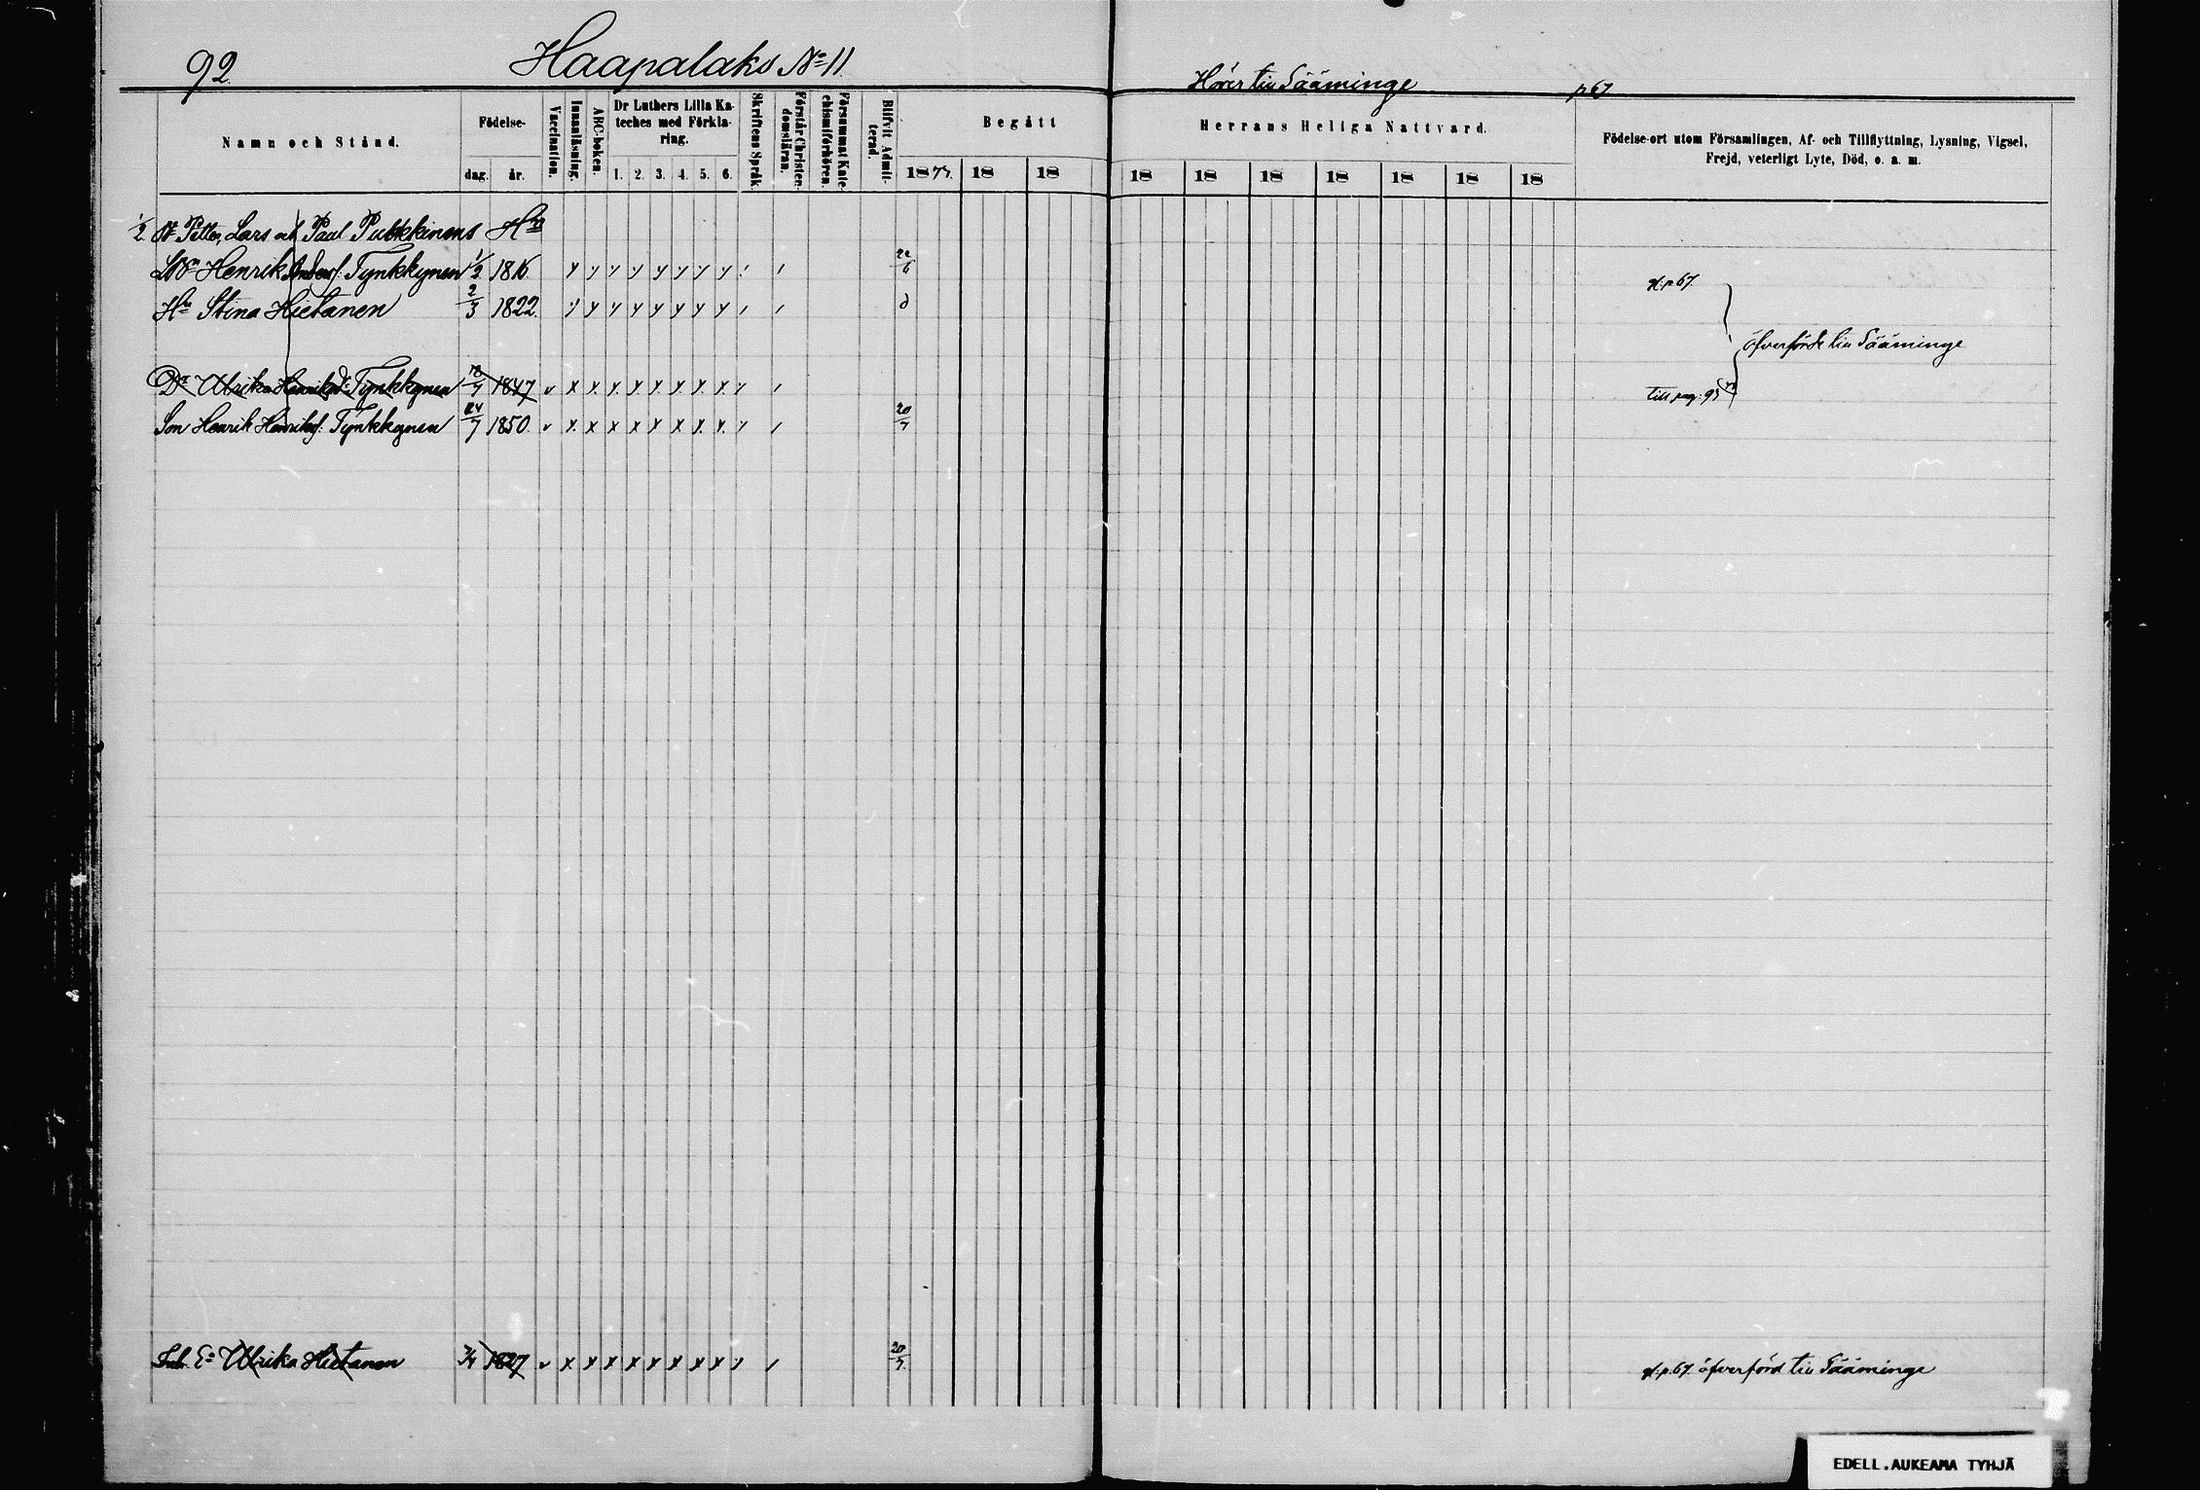 92.
Haapalaks No 11.
Hörer till Sääminge p 67
Namn och Stånd.
Födelse-
dag.
år.
Vaccination.
Innanläsning.
ABC-boken.
Dr Luthers Lilla Ka-
teches med Förkla-
ring.
1. 2. 3. 4. 5. 6.
Skriftens Språk
Förstår Christen-
domsläran.
Försummat Kate-
chismiförhören.
Blifvit Admit-
terad.
Begått
1877. 18 18
Herrans Heliga Nattvard.
18 18 18 18 18 18 18
Födelse-ort utom Församlingen, Af- och Tillflyttning, Lysning, Vigsel,
Frejd, veterligt Lyte, Död, o. a. m.
1/2 Petter, Lars och Paul Pukkinens Hn
Henrik Andersf. Tynkkynen 1/2 1816 22/6 p. 67.
Hu Stina Hietanen 2/3 1822. d
öfverförde till Sääminge
Dr Ulrika Henriksd: Tynkkynen 1847 v x x x x x x x x till pag. 93
Son Henrik Henriksf. Tynkkynen 24/7 1850. v x x x x x x x x 20/7
Ulrika Hietanen 1827 v x x x x x x x x 20/7. p. 67. öfverförd till Sääminge
EDELL.AUKEAMA TYHJÄ